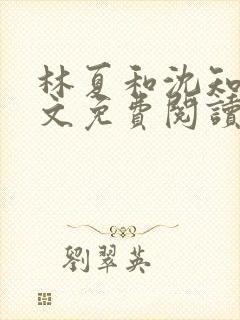 林夏和沈知
文免費閱讀
劉翠英